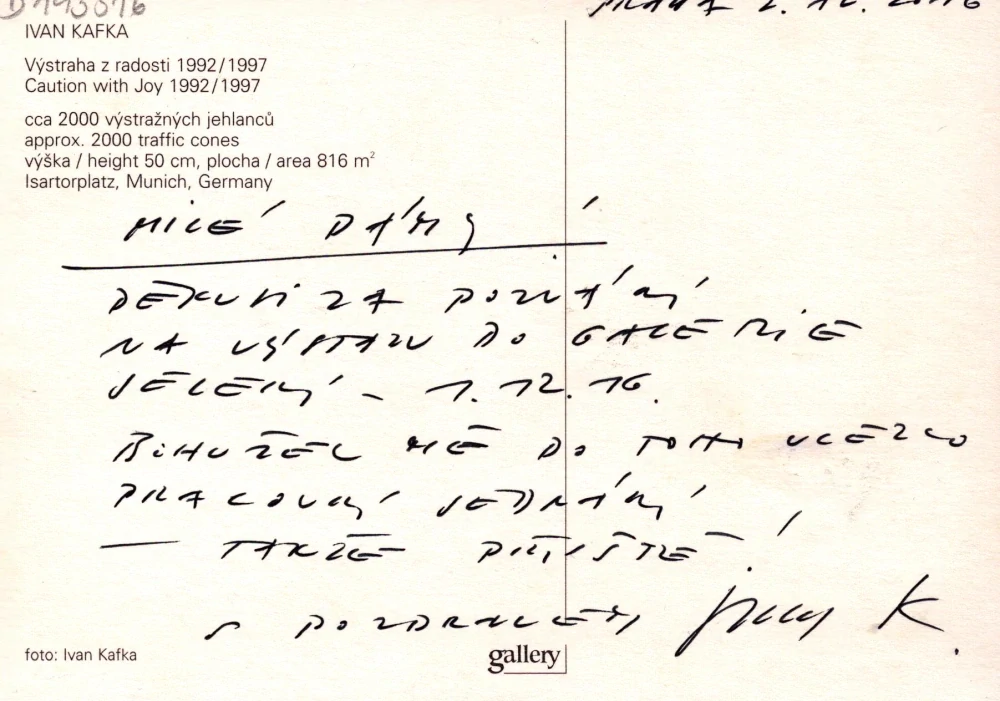 D 143516
PRAHA 2. 12. 2016
IVAN KAFKA
Výstraha z radosti 1992/1997
Caution with Joy 1992/1997
cca 2000 výstražných jehlanců
approx. 2000 traffic cones
výška / height 50 cm, plocha / area 816 m²
Isartorplatz, Munich, Germany
MILÉ DÁMY !
DĚKUJI ZA POZVÁNÍ
NA VÝSTAVU DO GALERIE
JELENÍ – 1. 12. 16.
BOHUŽEL MĚ DO TOHO VLEZLO
PRACOVNÍ JEDNÁNÍ
— TAKŽE PŘÍŠTĚ !
S POZDRAVEM K.
foto: Ivan Kafka
gallery